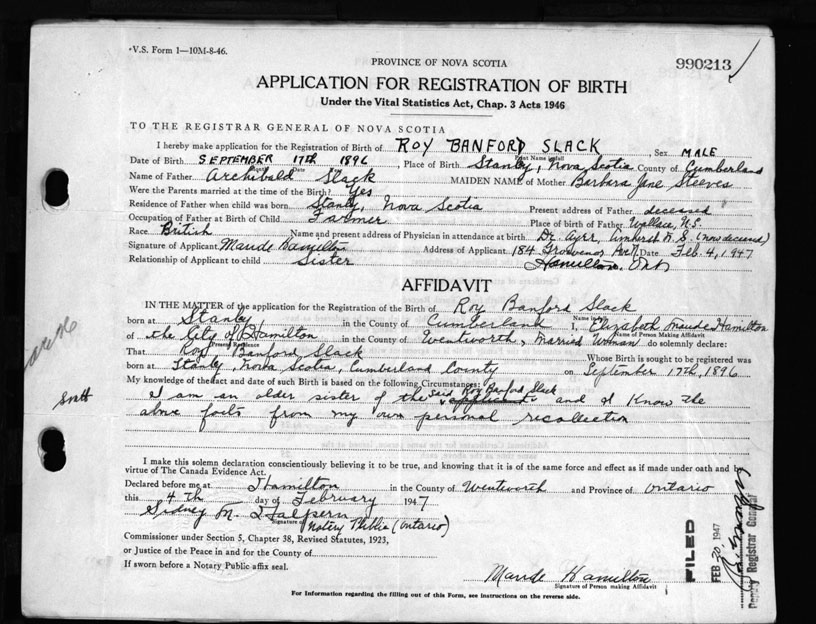 V.S. Form 1—10M-8-46.
PROVINCE OF NOVA SCOTIA
990213
APPLICATION FOR REGISTRATION OF BIRTH
Under the Vital Statistics Act, Chap. 3 Acts 1946
TO THE REGISTRAR GENERAL OF NOVA SCOTIA
I hereby make application for the Registration of Birth of ROY BANFORD SLACK, Sex MALE
Print Name in full
Date of Birth SEPTEMBER 17th 1896, Place of Birth Stanly, Nova Scotia County of Cumberland
Name of Father Archibald Slack MAIDEN NAME of Mother Barbara Jane Steeves
Were the Parents married at time of the Birth? Yes
Residence of Father when child was born Stanly, Nova Scotia Present address of Father deceased
Occupation of Father at Birth of Child Farmer Place of Birth of Father Wallace, N.S.
Race British Name and present address of Physician in attendance at birth Dr. Ayer, Amherst N.S. (now deceased)
Signature of Applicant Maude Hamilton Address of Applicant 184 Grosvenor Ave N. Date Feb. 4, 1947
Relationship of Applicant to child Sister Hamilton, Ont
AFFIDAVIT
IN THE MATTER of the application for the Registration of the Birth of Roy Banford Slack
Name in full
born at Stanly in the County of Cumberland I, Elizabeth Maude Hamilton
Name of Person Making Affidavit
of the City of Hamilton in the County of Wentworth, Married Woman do solemnly declare:
Present Residence
That Roy Banford Slack Whose Birth is sought to be registered was
born at Stanly, Nova Scotia, Cumberland County on September 17th, 1896
My knowledge of the fact and date of such Birth is based on the following Circumstances:
I am an older sister of the said Roy Banford Slack applicant and I know the
above facts from my own personal recollection
I make this solemn declaration conscientiously believing it to be true, and knowing that it is of the same force and effect as if made under oath and in
virtue of The Canada Evidence Act.
Declared before me at Hamilton in the County of Wentworth and Province of Ontario
this 4th day of February 1947
Sidney M. Halpern
Signature of Notary Public (Ontario)
Commissioner under Section 5, Chapter 38, Revised Statutes, 1923,
or Justice of the Peace in and for the County of
If sworn before a Notary Public affix seal.
Maude Hamilton
Signature of Person making Affidavit
For Information regarding the filling out of this Form, see instructions on the reverse side.
FILED
FEB 20 1947
Deputy Registrar General